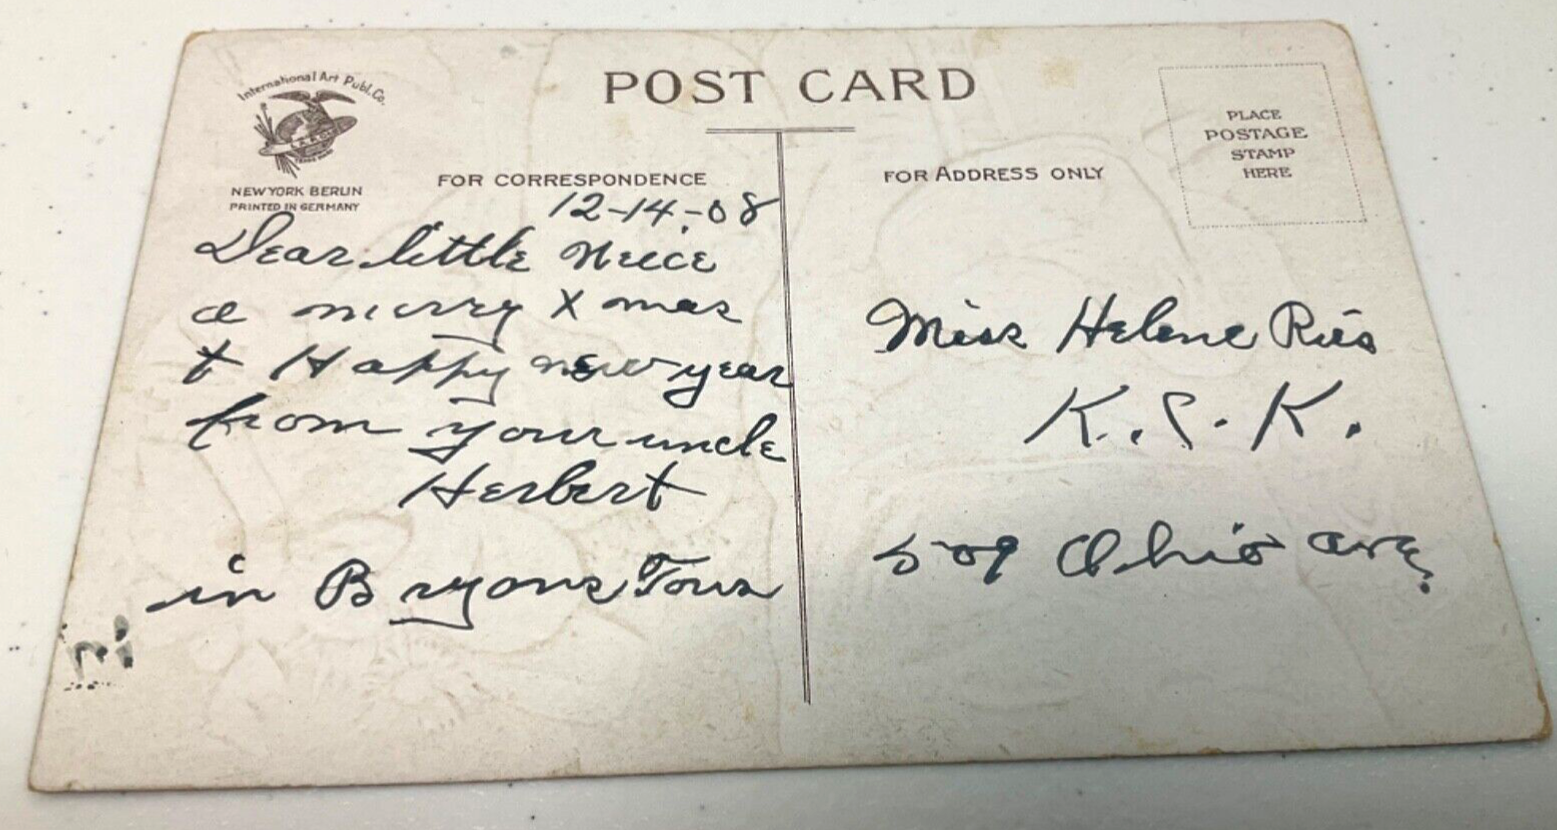 International Art Publ. Co.
NEW YORK BERLIN
PRINTED IN GERMANY
POST CARD
PLACE
POSTAGE
STAMP
HERE
FOR CORRESPONDENCE
12-14-08
Dear little Neece
a merry Xmas
& Happy new year
from your uncle
Herbert
in Bryons Town
FOR ADDRESS ONLY
Miss Helene Ries
K. C. K.
509 Ohio ave.